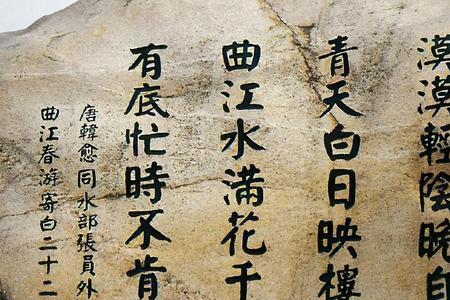 漠漠輕陰晚自
青天白日映樓
曲江水滿花千
有底忙時不肯
唐韓愈同水部張員外
曲江春游寄白二十二